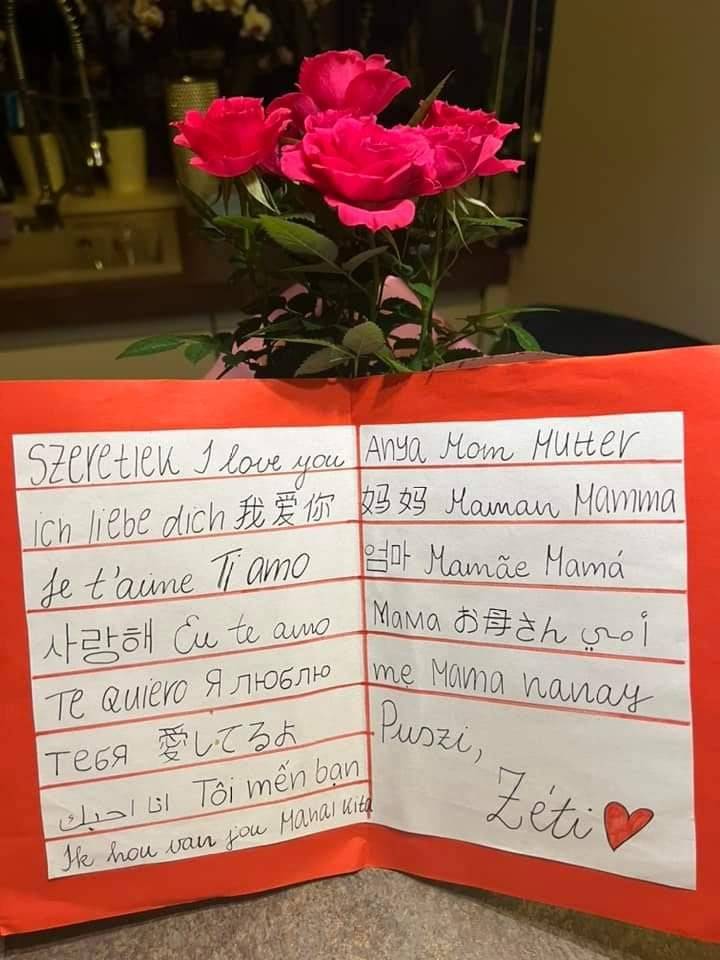 Szeretlek I love you
ich liebe dich 我爱你
Je t'aime Ti amo
사랑해 Eu te amo
Te quiero Я люблю
тебя 愛してるよ
انا احبك Tôi mến bạn
Ik hou van jou Mahal kita
Anya Mom Mutter
妈妈 Maman Mamma
엄마 Mamãe Mamá
Мама お母さん أمي
mẹ Mama nanay
Puszi,
Zéti